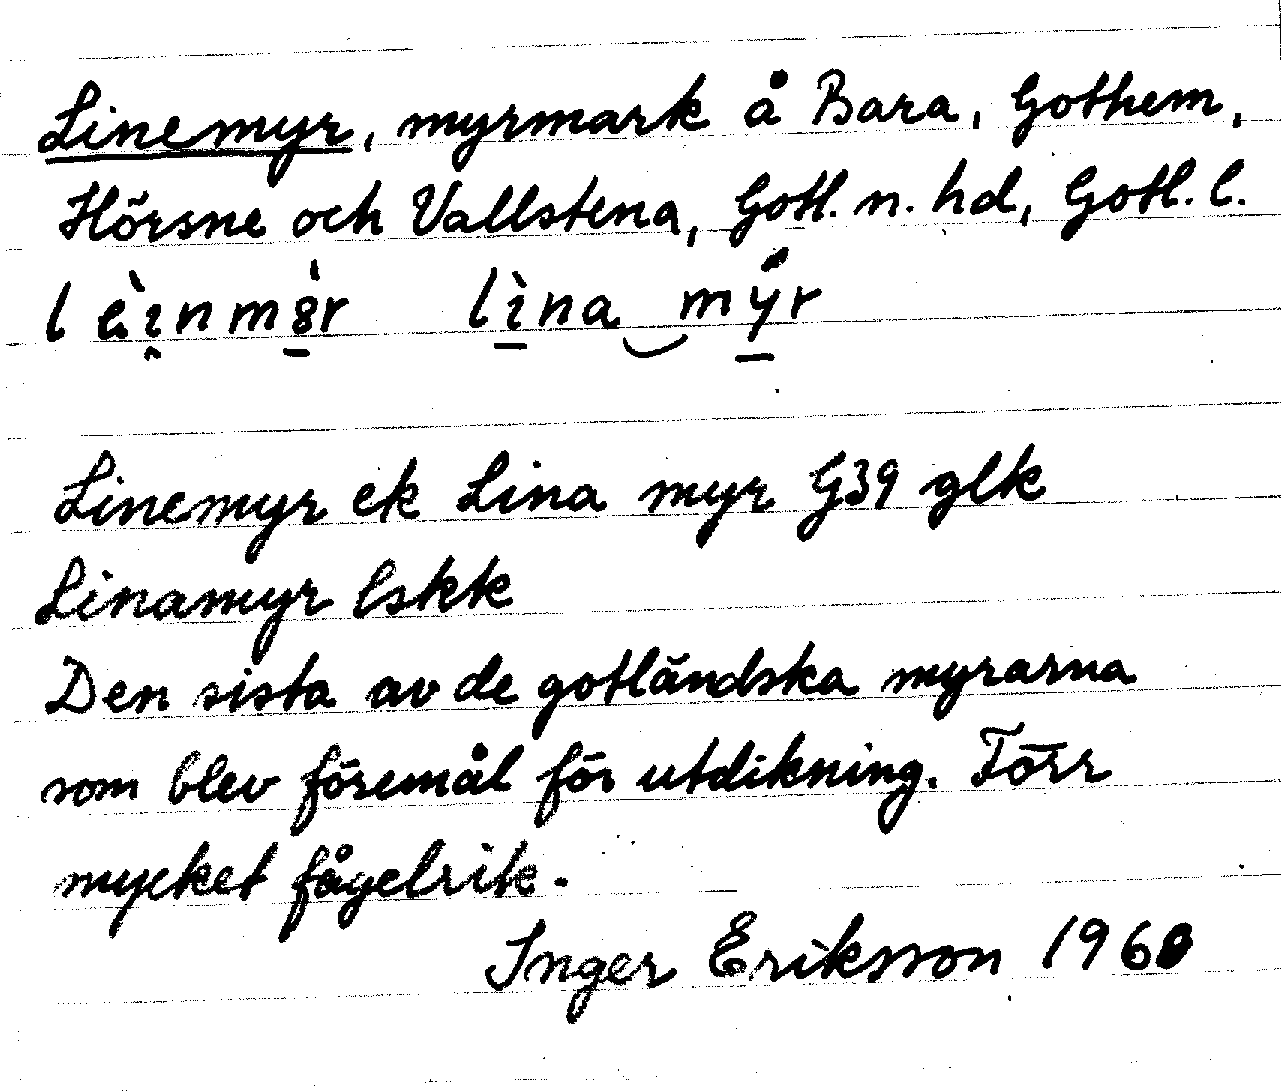 Linemyr, myrmark å Bara, Gothem,
Hörsne och Vallstena, Gotl. n. hd, Gotl. l.
lèi̯nm8̀r lìna‿mýr
Linemyr ek Lina myr G39 glk
Linamyr lskk
Den sista av de gotländska myrarna
som blev föremål för utdikning. Förr
mycket fågelrik.
Inger Eriksson 1960